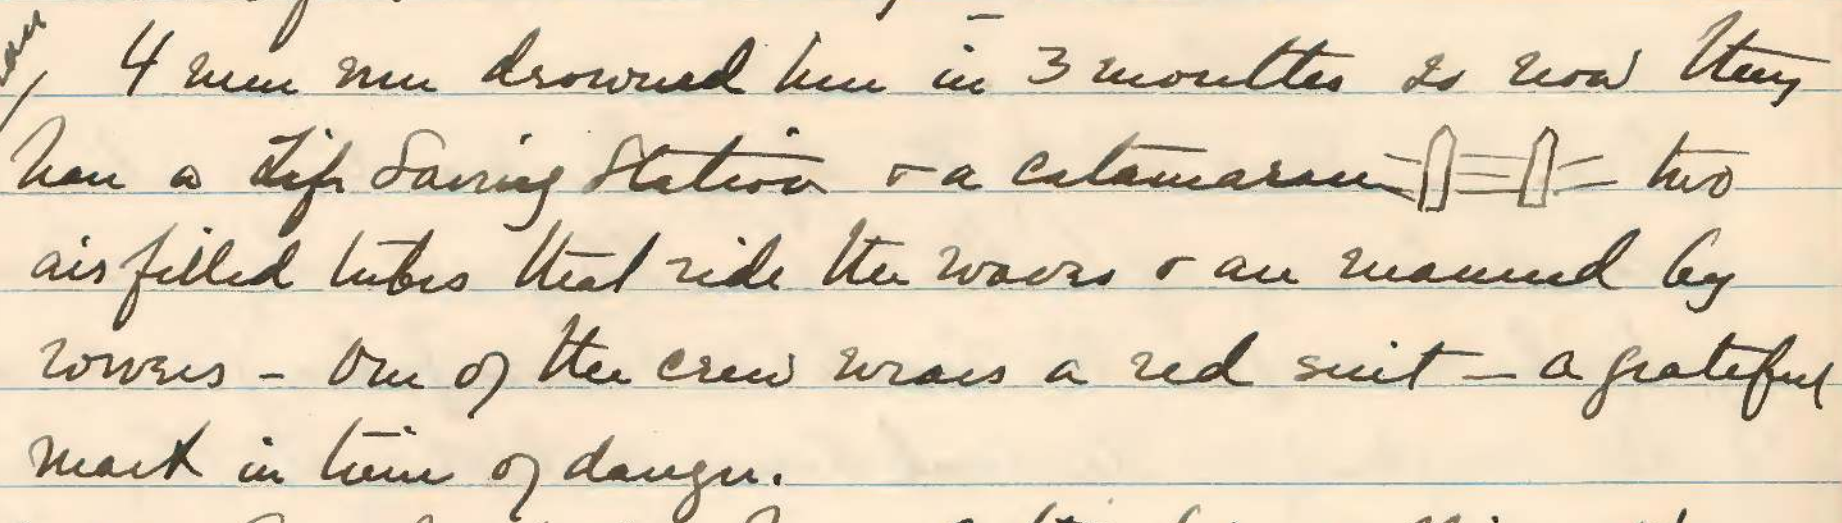 4 men were drowned here in 3 months so now they
have a Life Saving Station & a catamaran two
air filled tubes that ride the waves & are manned by
rowers - One of the crew wears a red suit - a grateful
mark in time of danger.